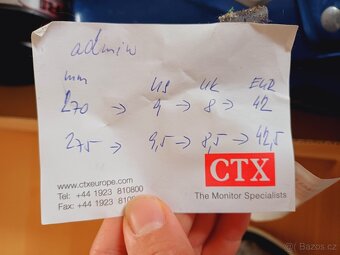 admiw
mm US UK EUR
270 → 9 → 8 → 42
275 → 9,5 → 8,5 → 42,5
CTX
www.ctxeurope.com
Tel: +44 1923 810800
Fax: +44 1923
The Monitor Specialists
© Bazos.cz